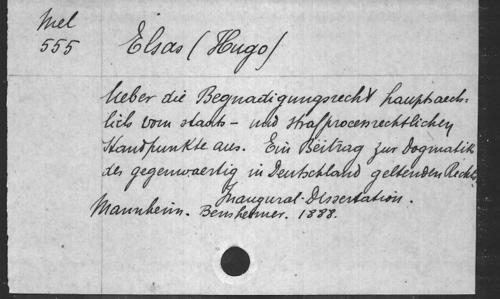 Mel
555
Elsas (Hugo)
Ueber die Begnadigungsrecht hauptsaech-
lich vom staats- und strafprocessrechtlichen
Standpunkte aus. Ein Beitrag zur Dogmatik
des gegenwaertig in Deutschland geltenden Rechts
Inaugural-Dissertation.
Mannheim. Bensheimer. 1888.